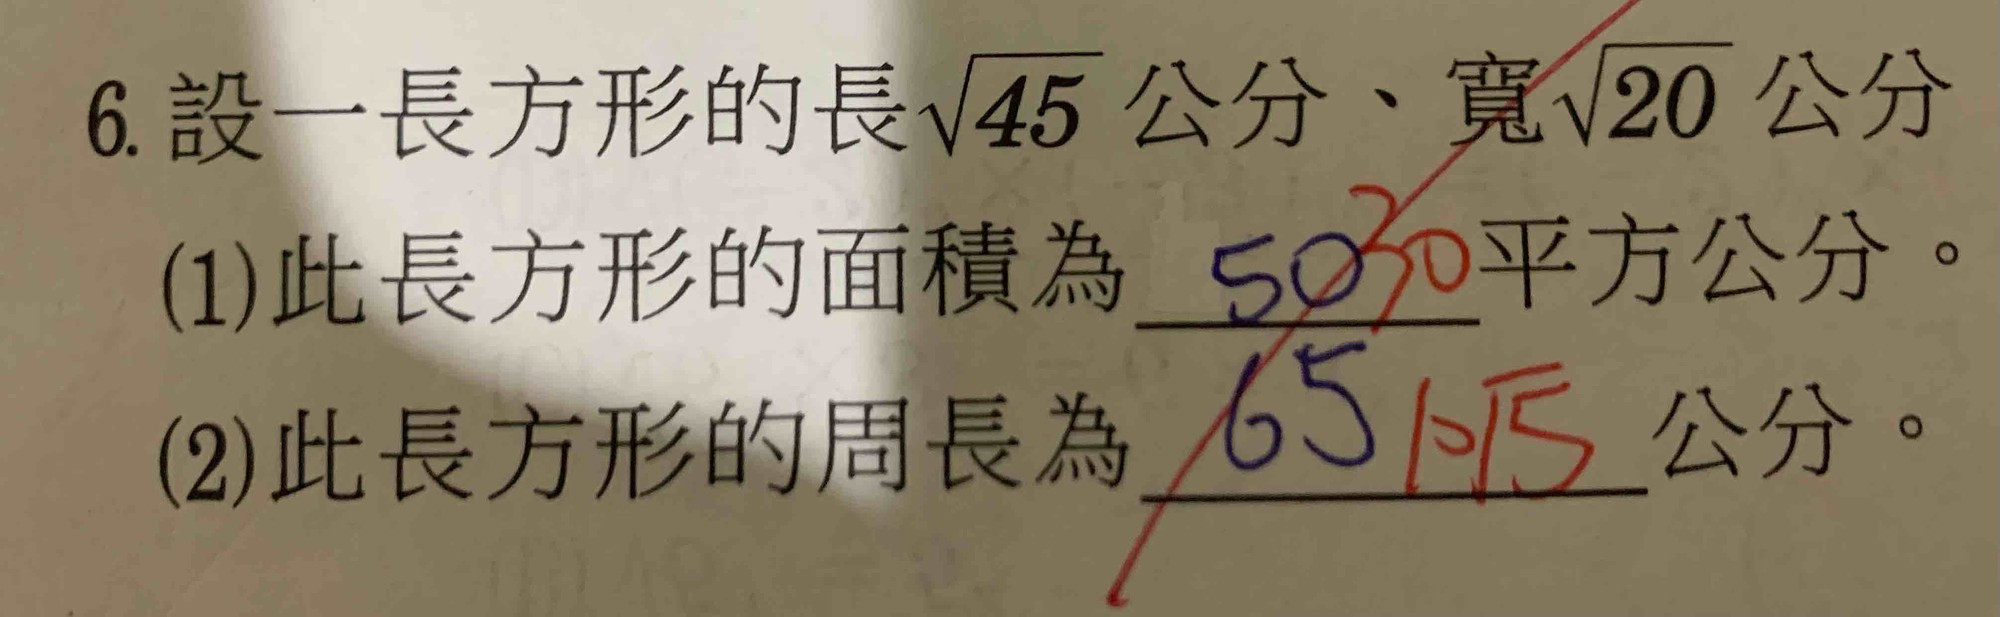 6. 設一長方形的長√45 公分、寬√20 公分
(1)此長方形的面積為 50 30 平方公分。
(2)此長方形的周長為 65 10√5 公分。